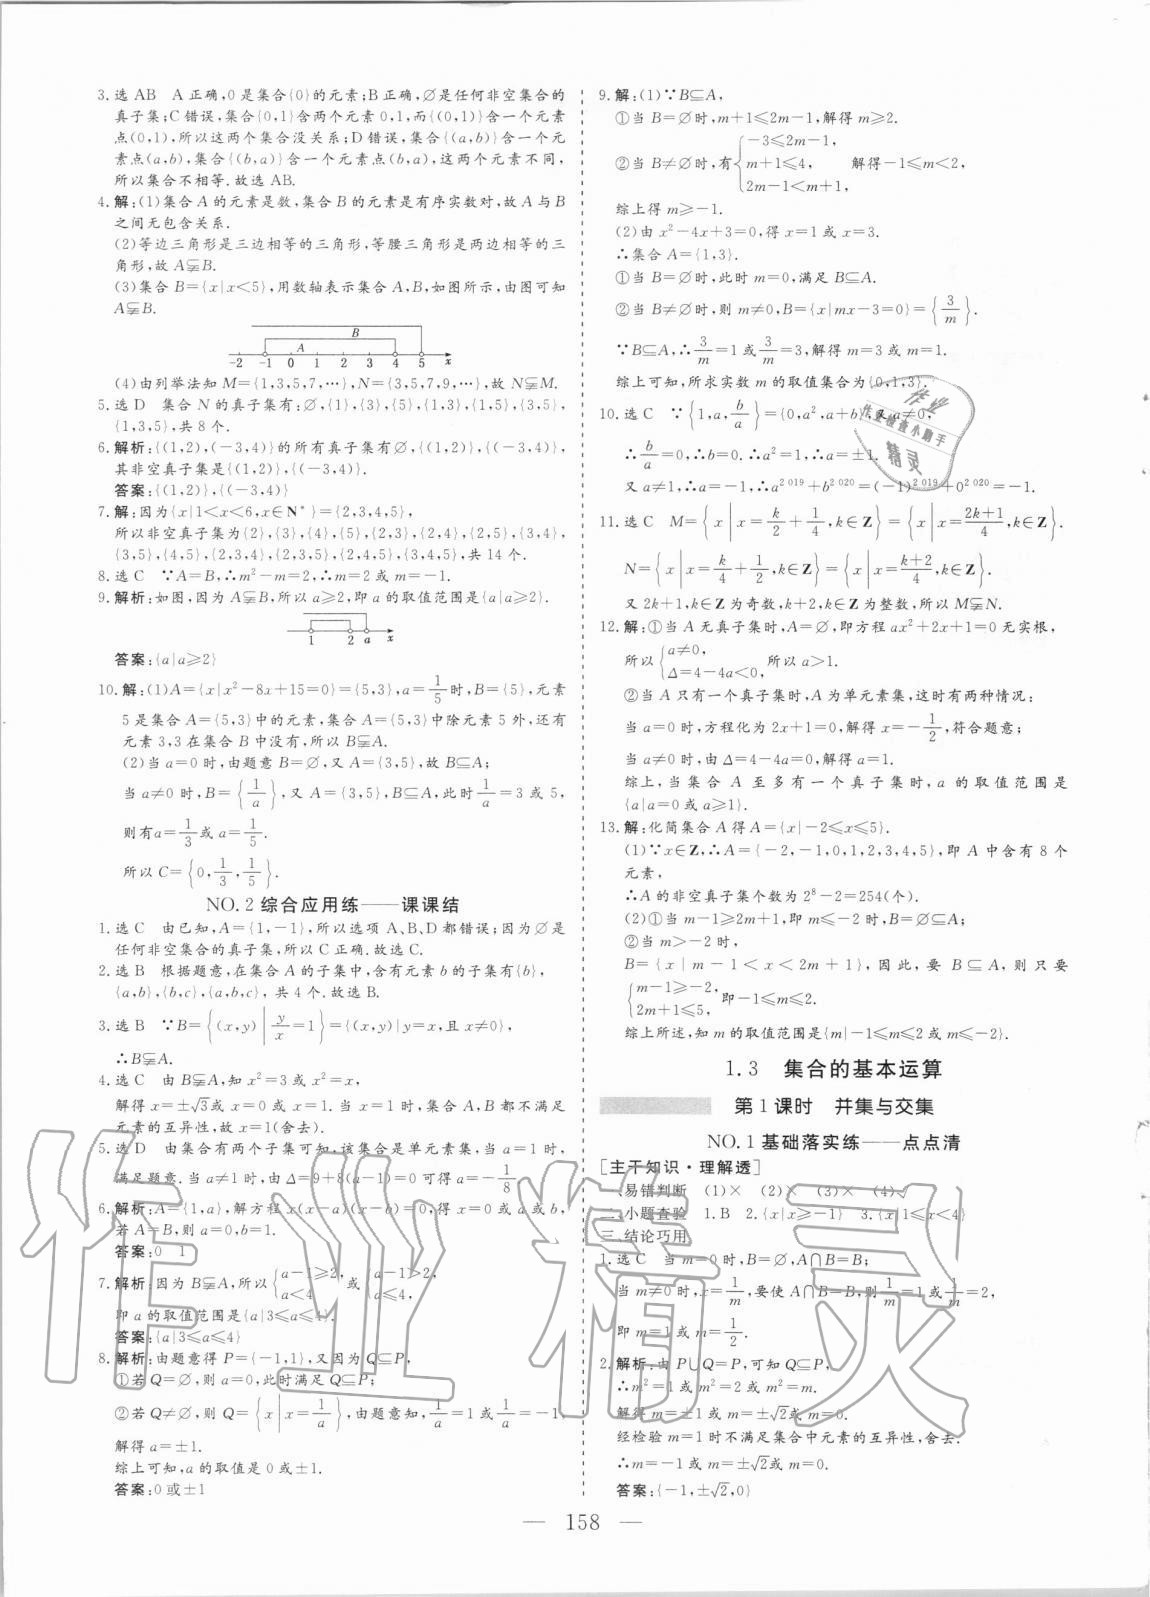 3. 选 AB　A 正确,0 是集合{0}的元素;B 正确,∅是任何非空集合的
真子集;C 错误,集合{0,1}含两个元素 0,1,而{(0,1)}含一个元素
点(0,1),所以这两个集合没关系;D 错误,集合{(a,b)}含一个元
素点(a,b),集合{(b,a)}含一个元素点(b,a),这两个元素不同,
所以集合不相等. 故选 AB.
4. 解:(1)集合 A 的元素是数,集合 B 的元素是有序实数对,故 A 与 B
之间无包含关系.
(2)等边三角形是三边相等的三角形,等腰三角形是两边相等的三
角形,故 A⫋B.
(3)集合 B={x|x<5},用数轴表示集合 A,B,如图所示,由图可知
A⫋B.
B
A
-2 -1 0 1 2 3 4 5 x
(4)由列举法知 M={1,3,5,7,…},N={3,5,7,9,…},故 N⫋M.
5. 选 D　集合 N 的真子集有:∅,{1},{3},{5},{1,3},{1,5},{3,5},
{1,3,5},共 8 个.
6. 解析:{(1,2),(-3,4)}的所有真子集有∅,{(1,2)},{(-3,4)},
其非空真子集是{(1,2)},{(-3,4)}.
答案:{(1,2)},{(-3,4)}
7. 解:因为{x|1<x<6,x∈N*}={2,3,4,5},
所以非空真子集为{2},{3},{4},{5},{2,3},{2,4},{2,5},{3,4},
{3,5},{4,5},{2,3,4},{2,3,5},{2,4,5},{3,4,5},共 14 个.
8. 选 C　∵A=B,∴m²-m=2,∴m=2 或 m=-1.
9. 解析:如图,因为 A⫋B,所以 a≥2,即 a 的取值范围是{a|a≥2}.
1 2 a x
答案:{a|a≥2}
10. 解:(1)A={x|x²-8x+15=0}={5,3},a=1/5时,B={5},元素
5 是集合 A={5,3}中的元素,集合 A={5,3}中除元素 5 外,还有
元素 3,3 在集合 B 中没有,所以 B⫋A.
(2)当 a=0 时,由题意 B=∅,又 A={3,5},故 B⊆A;
当 a≠0 时,B={1/a},又 A={3,5},B⊆A,此时1/a=3 或 5,
则有a=1/3或 a=1/5.
所以 C={0,1/3,1/5}.
NO. 2 综合应用练——课课结
1. 选 C　由已知,A={1,-1},所以选项 A、B、D 都错误;因为∅是
任何非空集合的真子集,所以 C 正确. 故选 C.
2. 选 B　根据题意,在集合 A 的子集中,含有元素 b 的子集有{b},
{a,b},{b,c},{a,b,c},共 4 个. 故选 B.
3. 选 B　∵B={(x,y)|y/x=1}={(x,y)|y=x,且 x≠0},
∴B⫋A.
4. 选 C　由 B⫋A,知 x²=3 或 x²=x,
解得 x=±√3或 x=0 或 x=1. 当 x=1 时,集合 A,B 都不满足
元素的互异性,故 x=1(舍去).
5. 选 D　由集合有两个子集可知,该集合是单元素集,当 a=1 时,
满足题意. 当 a≠1 时,由 Δ=9+8(a-1)=0 可得 a=-1/8.
6. 解析:A={1,a},解方程 x(x-a)(x-b)=0,得 x=0 或 a 或 b,
若 A=B,则 a=0,b=1.
答案:0　1
7. 解析:因为 B⫋A,所以{a-1≥2,a<4 或{a-1>2,a≤4,
即 a 的取值范围是{a|3≤a≤4}.
答案:{a|3≤a≤4}
8. 解析:由题意得 P={-1,1},又因为 Q⊆P,
①若 Q=∅,则 a=0,此时满足 Q⊆P;
②若 Q≠∅,则 Q={x|x=1/a},由题意知,1/a=1 或1/a=-1,
解得 a=±1.
综上可知,a 的取值是 0 或±1.
答案:0 或±1
9. 解:(1)∵B⊆A,
①当 B=∅时,m+1≤2m-1,解得 m≥2.
②当 B≠∅时,有{-3≤2m-1,m+1≤4,2m-1<m+1,解得-1≤m<2,
综上得 m≥-1.
(2)由 x²-4x+3=0,得 x=1 或 x=3.
∴集合 A={1,3}.
①当 B=∅时,此时 m=0,满足 B⊆A.
②当 B≠∅时,则 m≠0,B={x|mx-3=0}={3/m}.
∵B⊆A,∴3/m=1 或3/m=3,解得 m=3 或 m=1.
综上可知,所求实数 m 的取值集合为{0,1,3}.
10. 选 C　∵{1,a,b/a}={0,a²,a+b},又 a≠0,
∴b/a=0,∴b=0. ∴a²=1,∴a=±1.
又 a≠1,∴a=-1,∴a²⁰¹⁹+b²⁰²⁰=(-1)²⁰¹⁹+0²⁰²⁰=-1.
11. 选 C　M={x|x=k/2+1/4,k∈Z}={x|x=(2k+1)/4,k∈Z}.
N={x|x=k/4+1/2,k∈Z}={x|x=(k+2)/4,k∈Z}.
又 2k+1,k∈Z 为奇数,k+2,k∈Z 为整数,所以 M⫋N.
12. 解:①当 A 无真子集时,A=∅,即方程 ax²+2x+1=0 无实根,
所以{a≠0,Δ=4-4a<0,所以 a>1.
②当 A 只有一个真子集时,A 为单元素集,这时有两种情况:
当 a=0 时,方程化为 2x+1=0,解得 x=-1/2,符合题意;
当 a≠0 时,由 Δ=4-4a=0,解得 a=1.
综上,当集合 A 至多有一个真子集时,a 的取值范围是
{a|a=0 或 a≥1}.
13. 解:化简集合 A 得 A={x|-2≤x≤5}.
(1)∵x∈Z,∴A={-2,-1,0,1,2,3,4,5},即 A 中含有 8 个
元素,
∴A 的非空真子集个数为 2⁸-2=254(个).
(2)①当 m-1≥2m+1,即 m≤-2 时,B=∅⊆A;
②当 m>-2 时,
B={x|m-1<x<2m+1},因此,要 B⊆A,则只要
{m-1≥-2,2m+1≤5,即-1≤m≤2.
综上所述,知 m 的取值范围是{m|-1≤m≤2 或 m≤-2}.
1.3　集合的基本运算
第 1 课时　并集与交集
NO. 1 基础落实练——点点清
[主干知识·理解透]
一、易错判断　(1)×　(2)×　(3)×　(4)√
二、小题查验　1. B　2. {x|x≥-1}　3. {x|1≤x<4}
三、结论巧用
1. 选 C　当 m=0 时,B=∅,A∩B=B;
当 m≠0 时,x=1/m,要使 A∩B=B,则1/m=1 或1/m=2,
即 m=1 或 m=1/2.
2. 解析:由 P∪Q=P,可知 Q⊆P,
∴m²=1 或 m²=2 或 m²=m.
解得 m=±1 或 m=±√2或 m=0.
经检验 m=1 时不满足集合中元素的互异性,舍去.
∴m=-1 或 m=±√2或 m=0.
答案:{-1,±√2,0}
— 158 —
作业
作业检查小助手
精灵
作业精灵